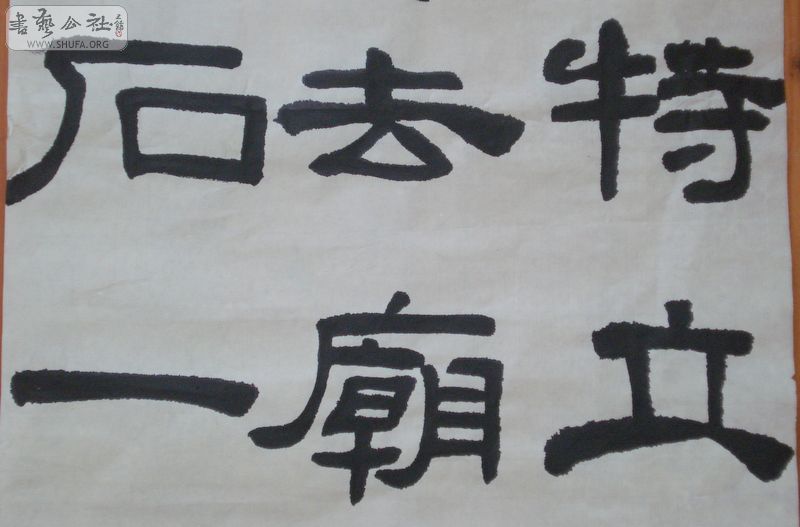 書藝公社
WWW.SHUFA.ORG
特立
去廟
石一